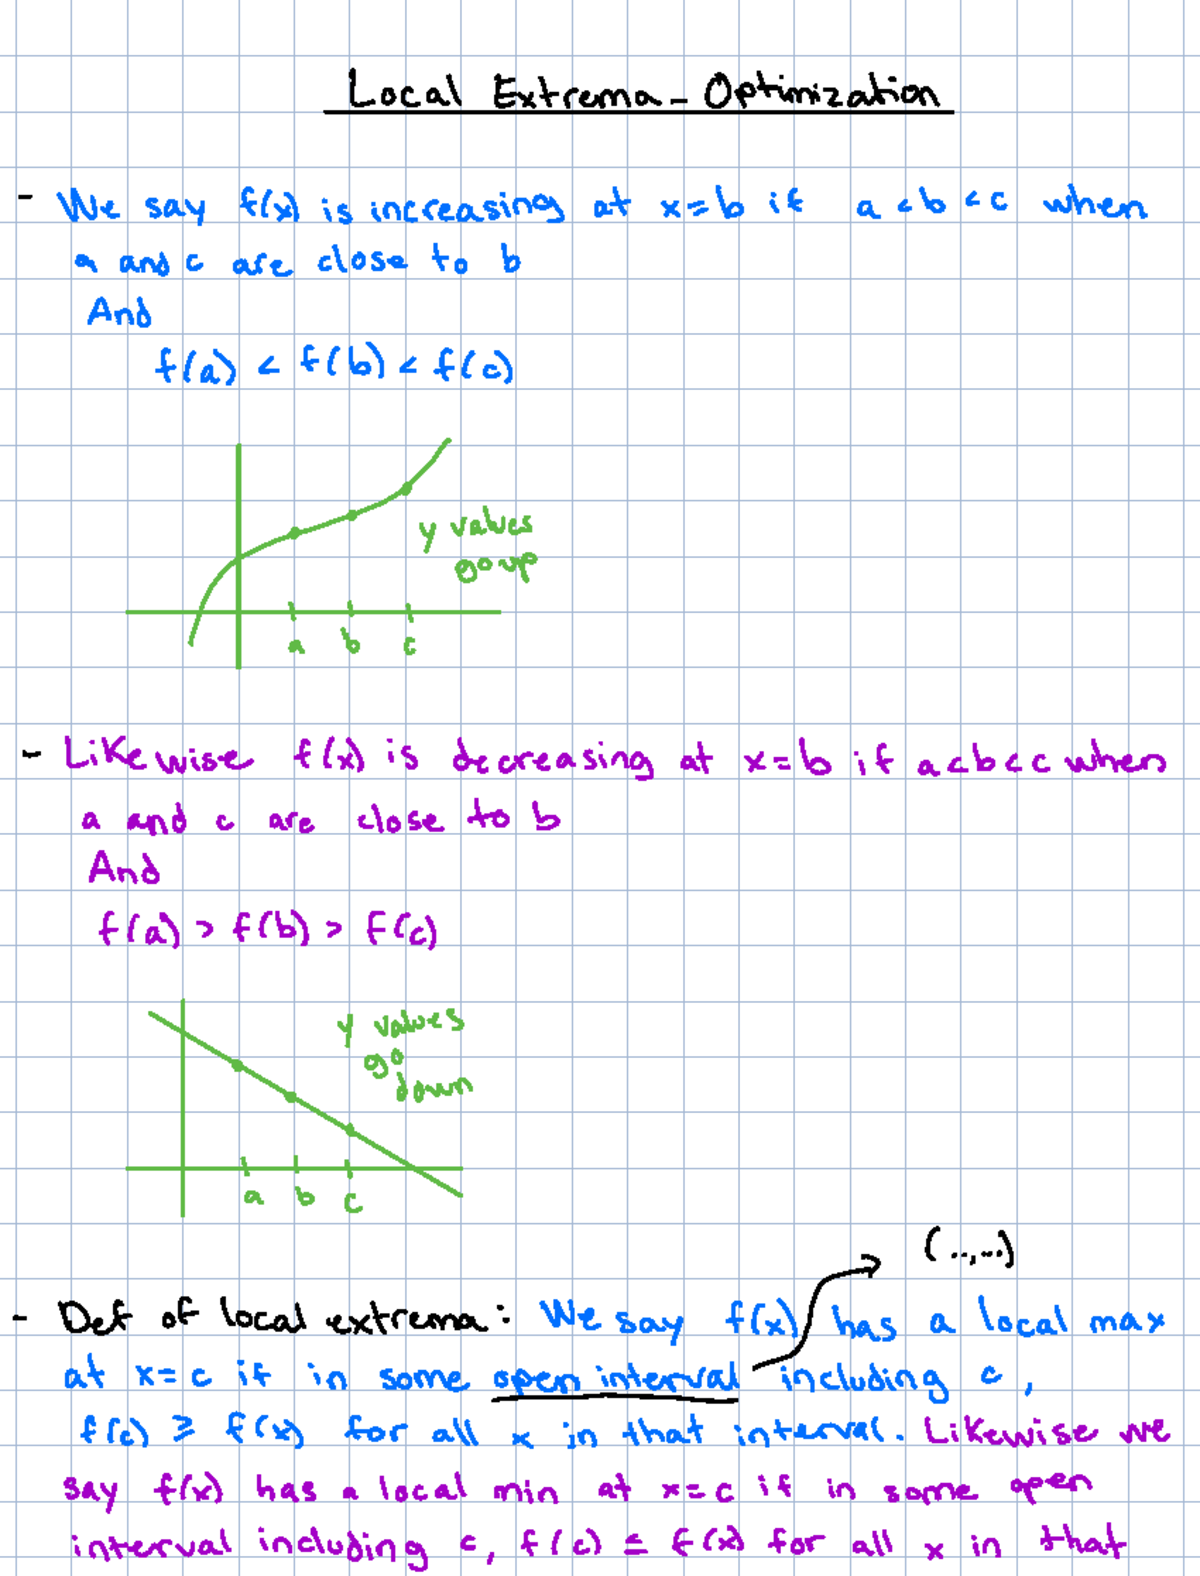 Local Extrema - Optimization
- We say f(x) is increasing at x=b if a<b<c when
a and c are close to b
And
f(a) < f(b) < f(c)
y values
go up
a b c
- Likewise f(x) is decreasing at x=b if a<b<c when
a and c are close to b
And
f(a) > f(b) > f(c)
y values
go
down
a b c
(..,...)
- Def of local extrema: We say f(x) has a local max
at x=c if in some open interval including c,
f(c) ≥ f(x) for all x in that interval. Likewise we
say f(x) has a local min at x=c if in some open
interval including c, f(c) ≤ f(x) for all x in that